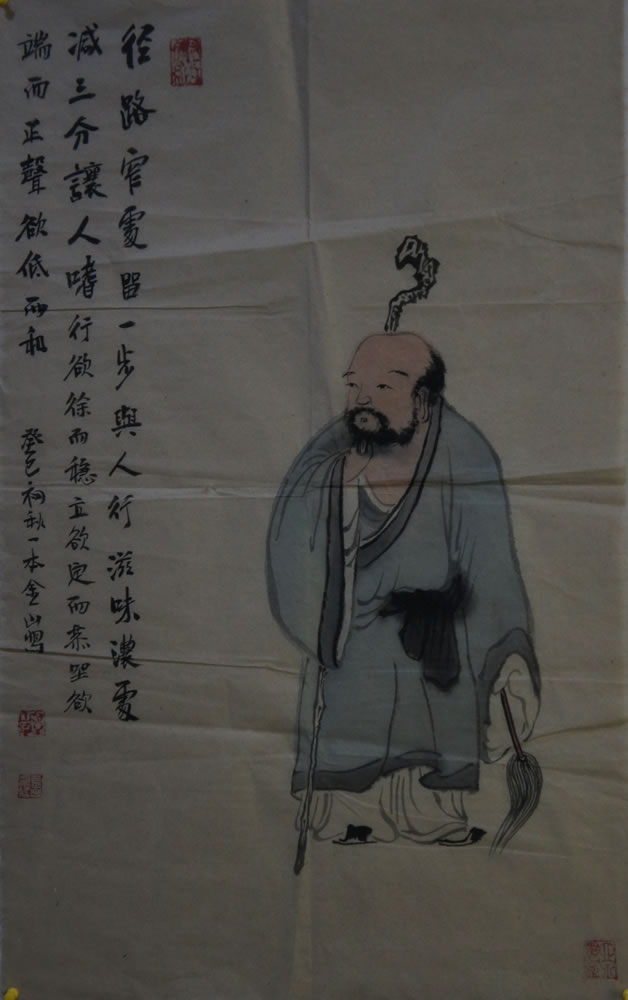 径路窄處留一步與人行滋味濃處
减三分讓人嗜行欲徐而穩立欲定而恭坐欲
端而正聲欲低而和
癸巳初秋一本金山寫